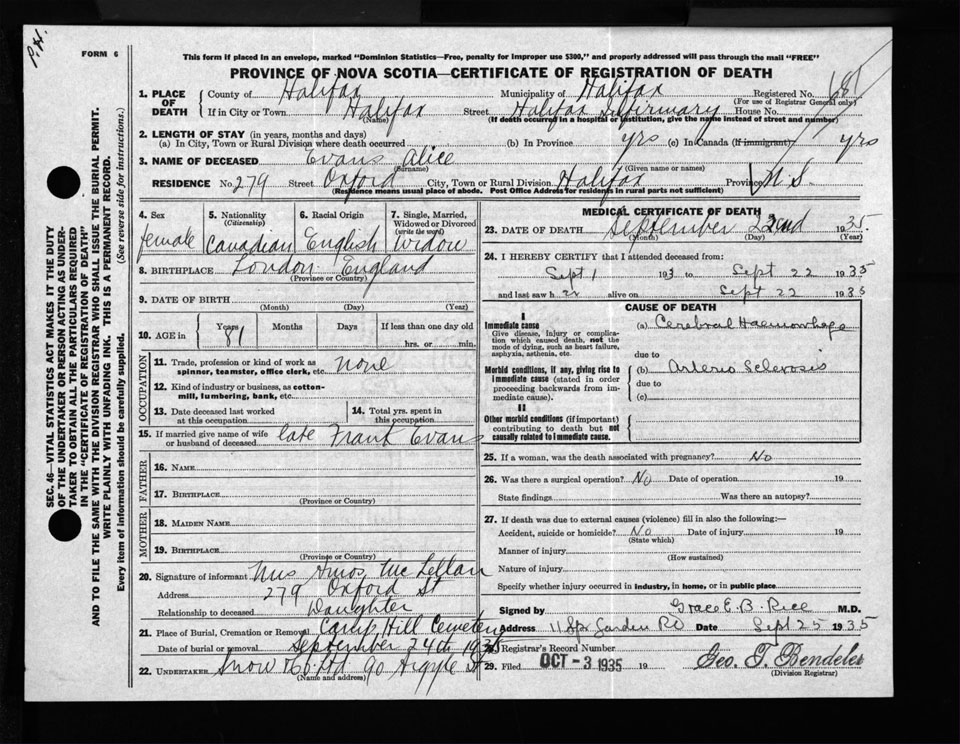 P.H.
FORM 6
This form if placed in an envelope, marked "Dominion Statistics—Free, penalty for improper use $300," and properly addressed will pass through the mail "FREE"
PROVINCE OF NOVA SCOTIA—CERTIFICATE OF REGISTRATION OF DEATH
1. PLACE OF DEATH County of Halifax Municipality of Halifax Registered No.
(For use of Registrar General only)
If in City or Town Halifax Street Halifax Infirmary House No.
(Name) (If death occurred in a hospital or institution, give the name instead of street and number)
2. LENGTH OF STAY (in years, months and days)
(a) In City, Town or Rural Division where death occurred (b) In Province yrs (c) In Canada (if immigrant) yrs
3. NAME OF DECEASED Evans Alice
(Surname) (Given name or names)
RESIDENCE No. 279 Street Oxford City, Town or Rural Division Halifax Province N.S.
(Residence means usual place of abode. Post Office Address for residents in rural parts not sufficient)
4. Sex female
5. Nationality (Citizenship) Canadian
6. Racial Origin English
7. Single, Married, Widowed or Divorced (write the word) Widow
8. BIRTHPLACE London England
(Province or Country)
9. DATE OF BIRTH
(Month) (Day) (Year)
10. AGE in Years 81 Months Days If less than one day old
hrs. or min.
OCCUPATION
11. Trade, profession or kind of work as spinner, teamster, office clerk, etc. none
12. Kind of industry or business, as cotton-mill, lumbering, bank, etc.
13. Date deceased last worked at this occupation
14. Total yrs. spent in this occupation
15. If married give name of wife or husband of deceased late Frank Evans
FATHER
16. NAME
17. BIRTHPLACE
(Province or Country)
MOTHER
18. MAIDEN NAME
19. BIRTHPLACE
(Province or Country)
20. Signature of informant Mrs Amos McLellan
Address 279 Oxford St
Relationship to deceased Daughter
21. Place of Burial, Cremation or Removal Camp Hill Cemetery
Date of burial or removal September 24th 1935
22. UNDERTAKER Snow & Co. Ltd 90 Argyle St
(Name and address)
MEDICAL CERTIFICATE OF DEATH
23. DATE OF DEATH September 22nd 1935
(Month) (Day) (Year)
24. I HEREBY CERTIFY that I attended deceased from:
Sept 1 193 to Sept 22 1935
and last saw h er alive on Sept 22 1935
CAUSE OF DEATH
I
Immediate cause
Give disease, injury or complication which caused death, not the mode of dying, such as heart failure, asphyxia, asthenia, etc.
(a) Cerebral Haemorrhage
due to
Morbid conditions, if any, giving rise to immediate cause (stated in order proceeding backwards from immediate cause).
(b) Arterio Sclerosis
due to
(c)
II
Other morbid conditions (if important) contributing to death but not causally related to immediate cause.
25. If a woman, was the death associated with pregnancy? No
26. Was there a surgical operation? No Date of operation 19
State findings Was there an autopsy?
27. If death was due to external causes (violence) fill in also the following:—
Accident, suicide or homicide? No Date of injury 19
(State which)
Manner of injury
(How sustained)
Nature of injury
Specify whether injury occurred in industry, in home, or in public place
Signed by Grace E. B. Rice M.D.
Address 11 Spr Garden Rd Date Sept 25 1935
28. Registrar's Record Number
29. Filed OCT - 3 1935 19 Geo. T. Bendeler
(Division Registrar)
SEC. 46—VITAL STATISTICS ACT MAKES IT THE DUTY
OF THE UNDERTAKER OR PERSON ACTING AS UNDER-
TAKER TO OBTAIN ALL THE PARTICULARS REQUIRED
IN THE "CERTIFICATE OF REGISTRATION OF DEATH"
AND TO FILE THE SAME WITH THE DIVISION REGISTRAR WHO SHALL ISSUE THE BURIAL PERMIT.
WRITE PLAINLY WITH UNFADING INK. THIS IS A PERMANENT RECORD.
Every item of information should be carefully supplied. (See reverse side for instructions.)